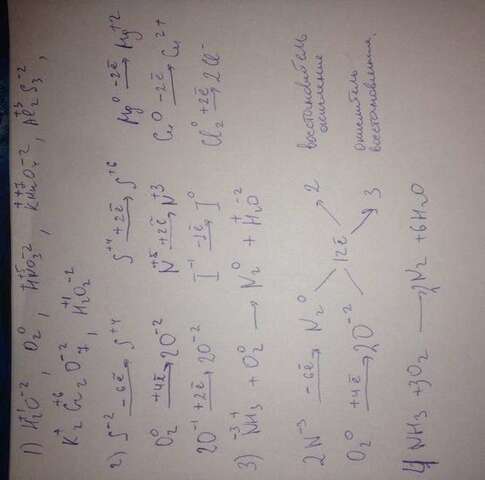 1) H₂⁺¹O⁻², O₂⁰, H⁺N⁺⁵O₃⁻², K⁺Mn⁺⁷O₄⁻², Al₂⁺³S₃⁻²,
K₂⁺Cr₂⁺⁶O₇⁻², H₂⁺¹O₂⁻²
2) S⁻² -6ē→ S⁺⁴ S⁺⁴ +2ē→ S⁺⁶ Mg⁰ -2ē→ Mg⁺²
O₂⁰ +4ē→ 2O⁻² N⁺⁵ +2ē→ N⁺³ Cu⁰ -2ē→ Cu²⁺
2O⁻¹ +2ē→ 2O⁻² I⁻¹ -1ē→ I⁰ Cl₂⁰ +2ē→ 2Cl⁻
3) N⁻³H₃⁺ + O₂⁰ → N₂⁰ + H₂⁺O⁻²
2N⁻³ -6ē→ N₂⁰ 2 восстановитель
окисление
12ē
O₂⁰ +4ē→ 2O⁻² 3 окислитель
восстановление.
4NH₃ + 3O₂ → 2N₂ + 6H₂O